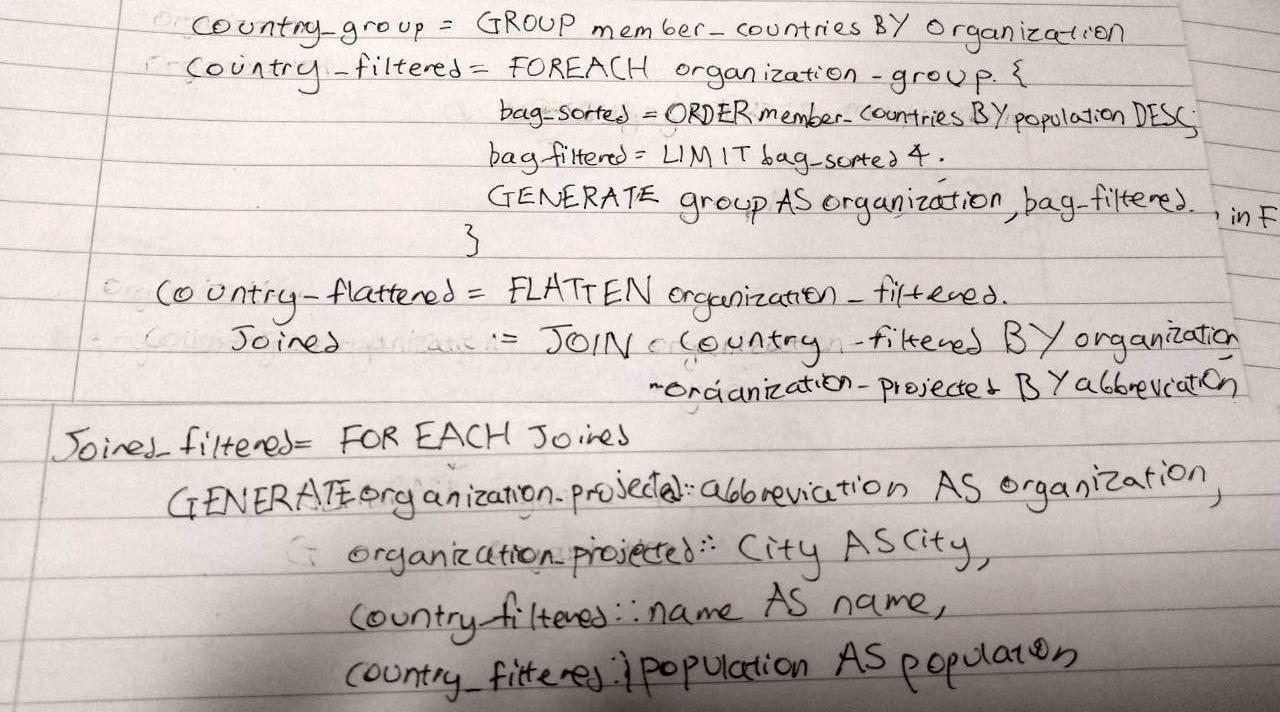 Country_group = GROUP member_countries BY Organization
Country_filtered = FOREACH organization_group. {
bag_sorted = ORDER member_countries BY population DESC;
bag_filtered = LIMIT bag_sorted 4.
GENERATE group AS organization, bag_filtered. , in F
}
Country_flattened = FLATTEN organization_filtered.
Joined := JOIN Country_filtered BY organization
organization_projected BY abbreviation
Joined_filtered = FOR EACH Joined
GENERATE organization_projected:: abbreviation AS organization,
organization_projected:: City AS City,
Country_filtered::name AS name,
Country_filtered:: population AS population